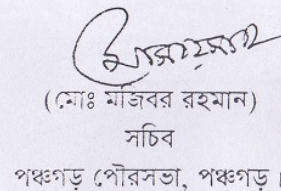 (মোঃ মজিবর রহমান)
সচিব
পঞ্চগড় পৌরসভা, পঞ্চগড়।